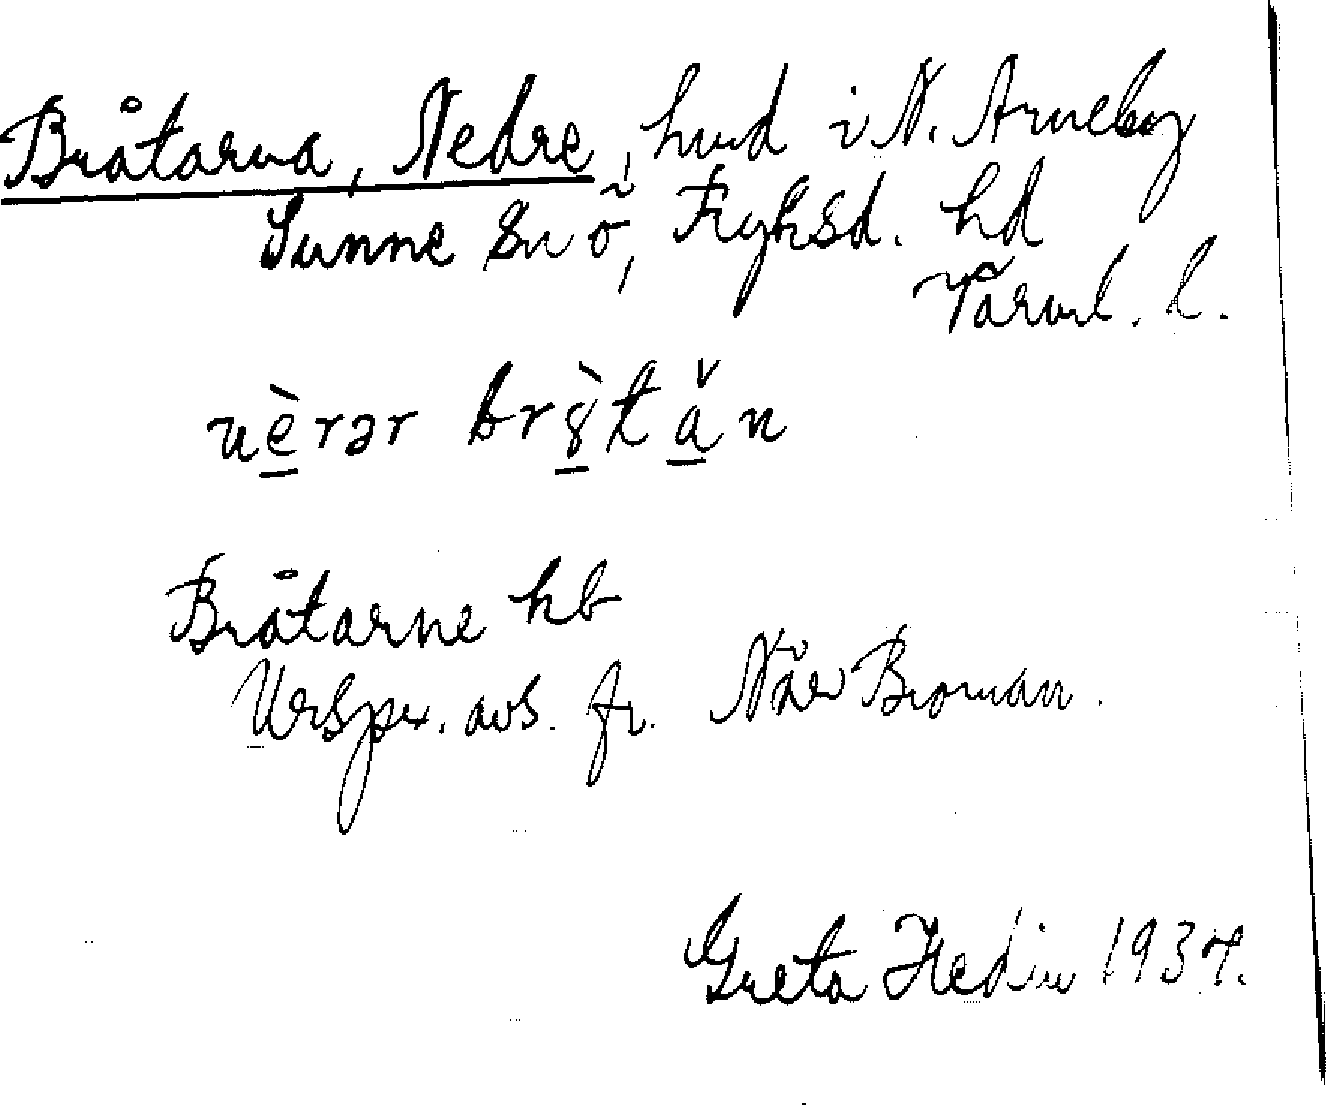 Bråtarna, Nedre, hmd i N. Arneby
Sunne sn ö, Fryksd. hd
Värml. l.
nèrər br8̀tǎn
Bråtarne hb
Urspr. avs. fr. Näs Broman.
Greta Hedin 1937.